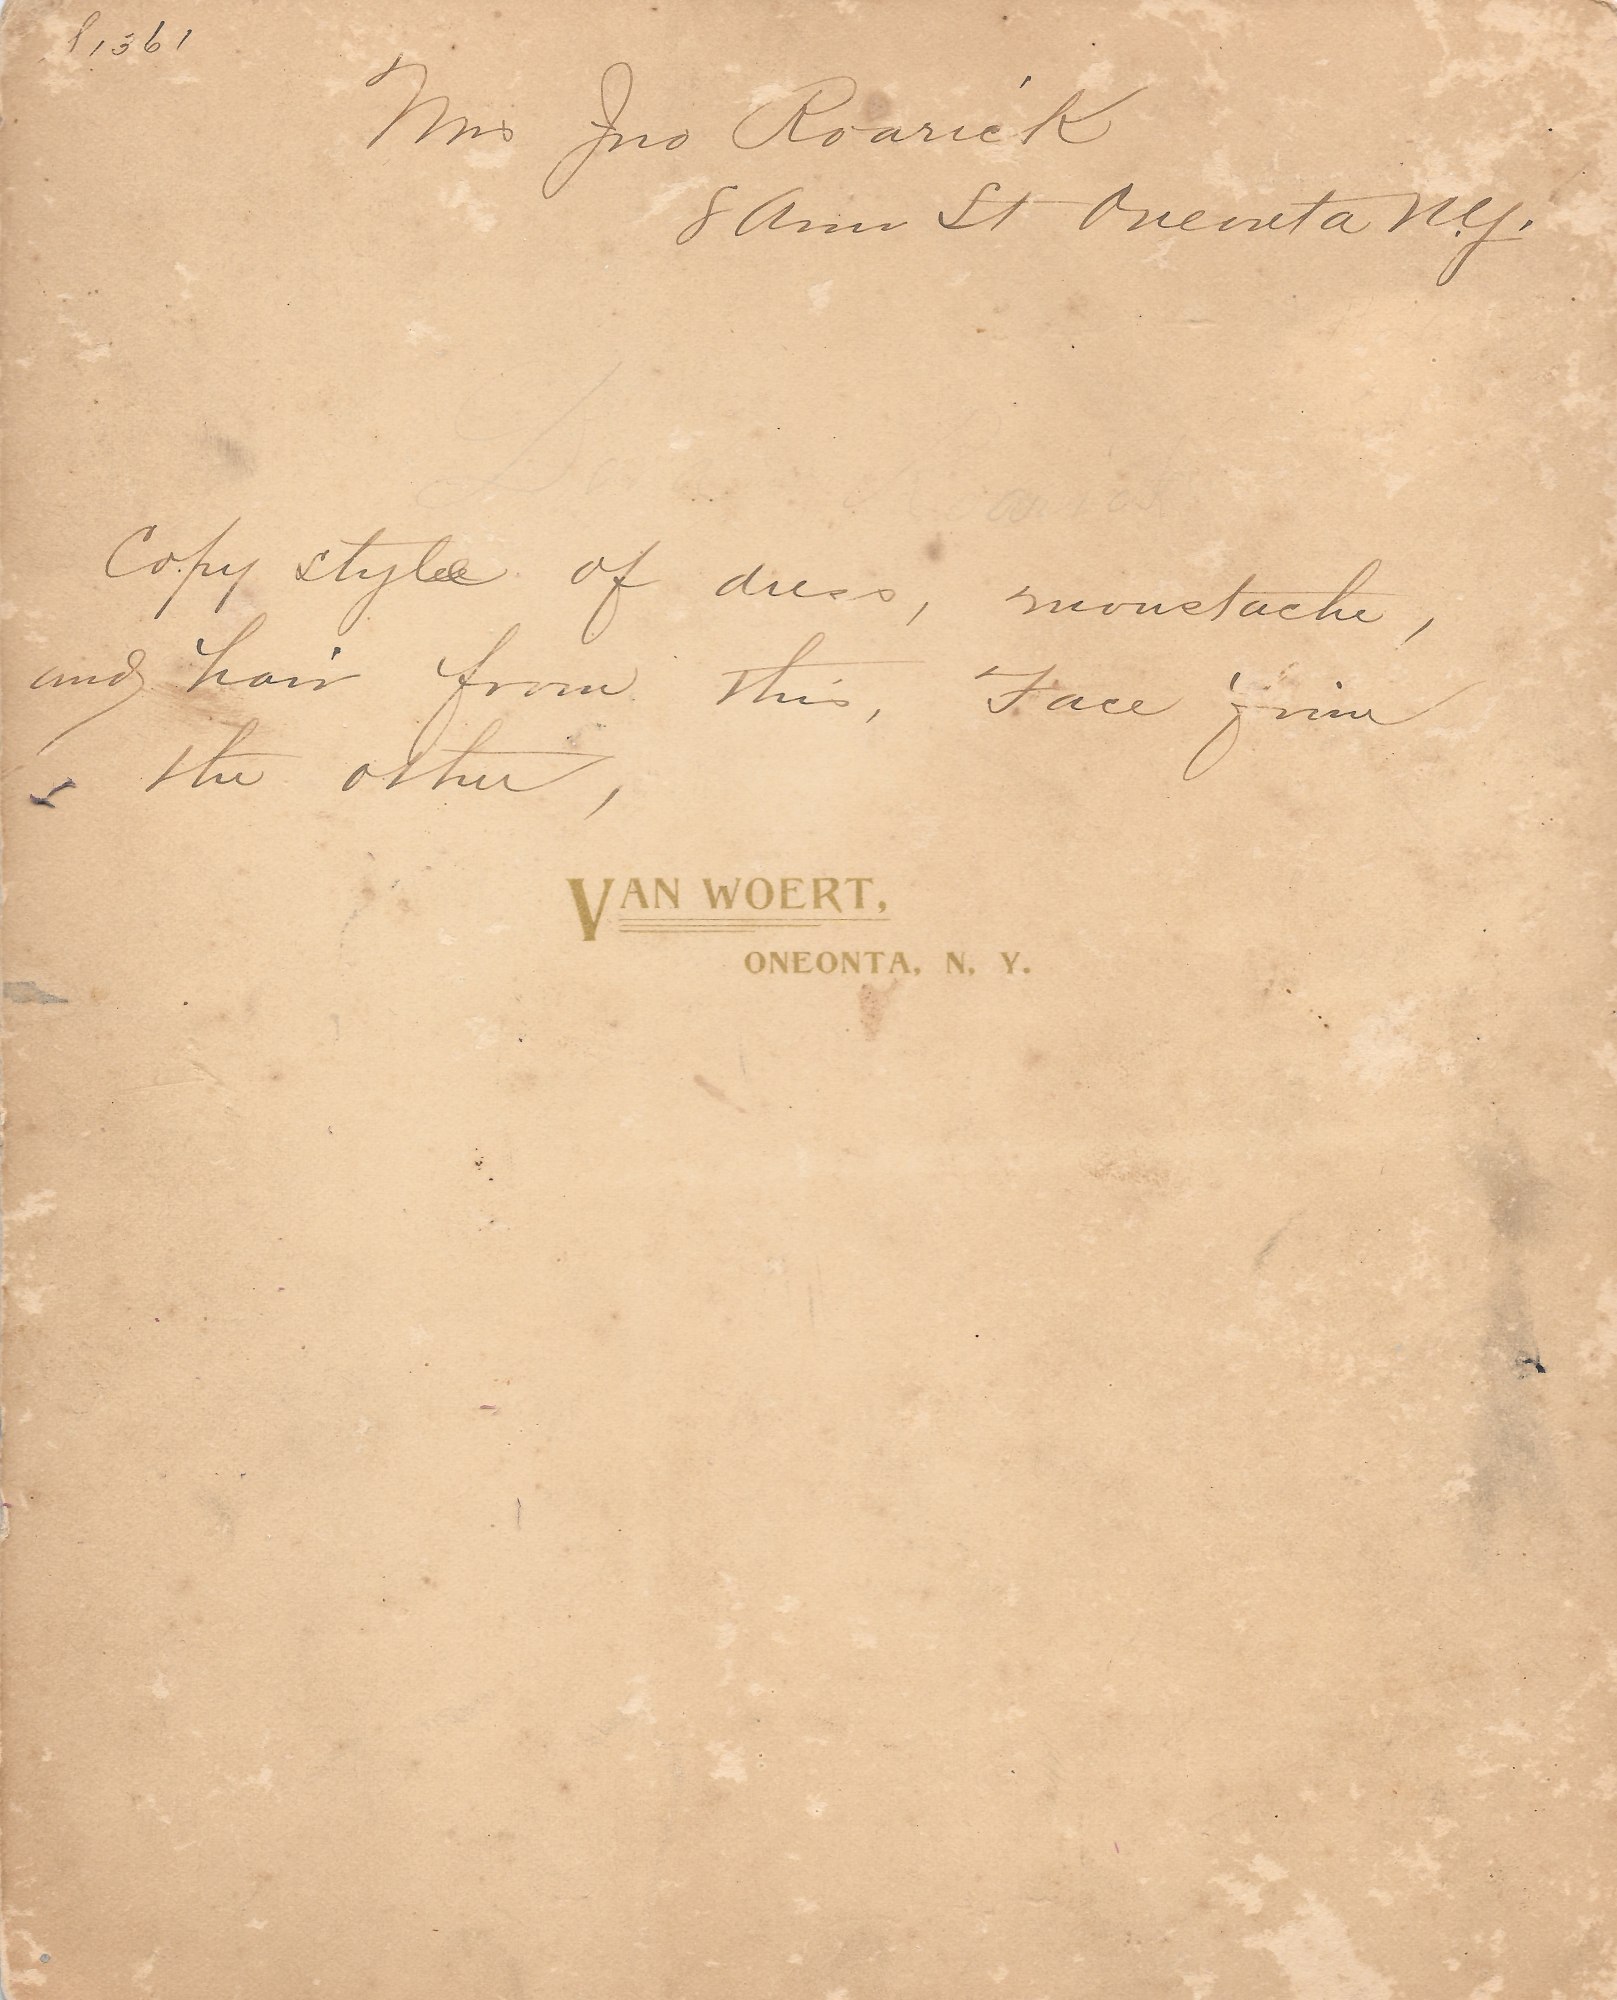 1361
Mrs Jno Roarick
8 Ann St Oneonta N.Y.
Copy style of dress, moustache,
and hair from this, Face from
the other,
VAN WOERT,
ONEONTA, N. Y.